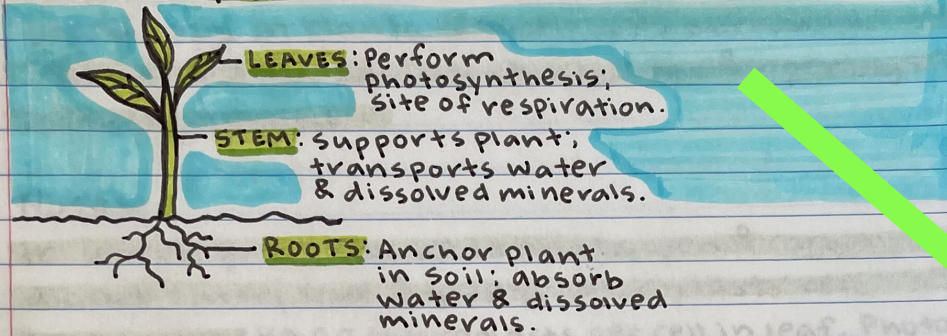 LEAVES: Perform
photosynthesis;
site of respiration.
STEM: supports plant;
transports water
& dissolved minerals.
ROOTS: Anchor plant
in soil; absorb
water & dissolved
minerals.